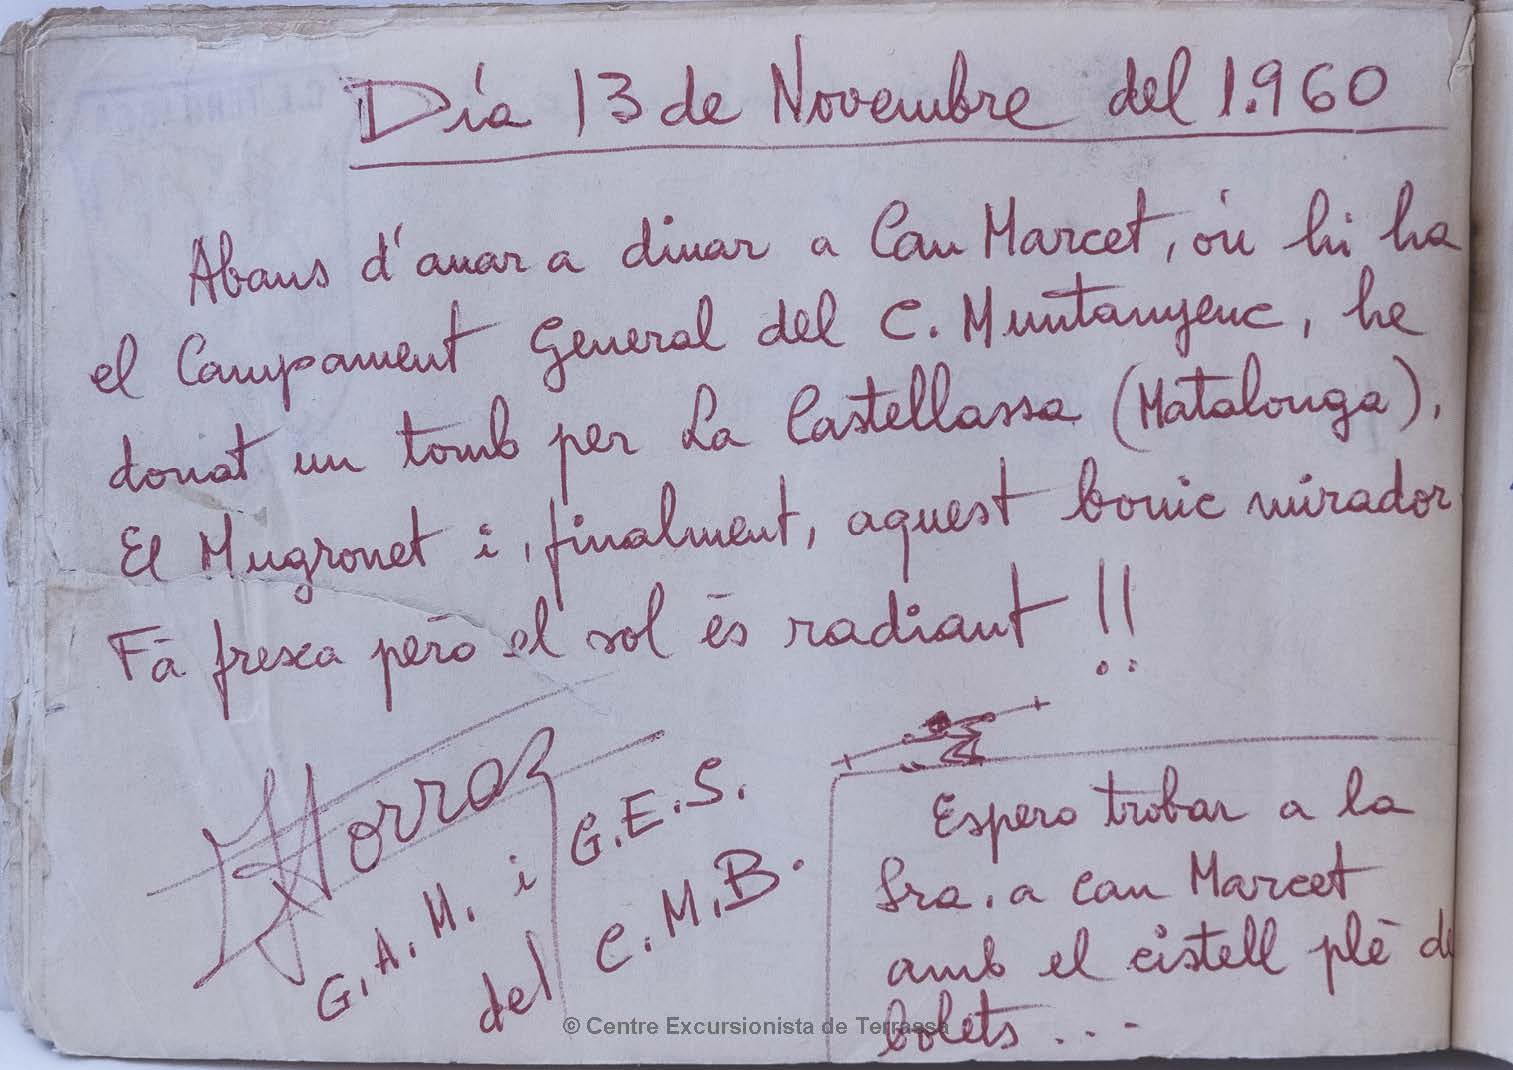 Día 13 de Novembre del 1.960
Abans d'anar a dinar a Can Marcet, ón hi ha
el Campament General del C. Muntanyenc, he
donat un tomb per La Castellassa (Matalonga),
El Mugronet i, finalment, aquest bonic mirador
Fà fresca però el sol és radiant !!
G.A.M. i G.E.S.
del C.M.B.
Espero trobar a la
Sra. a Can Marcet
amb el cistell plè de
bolets ...
© Centre Excursionista de Terrassa